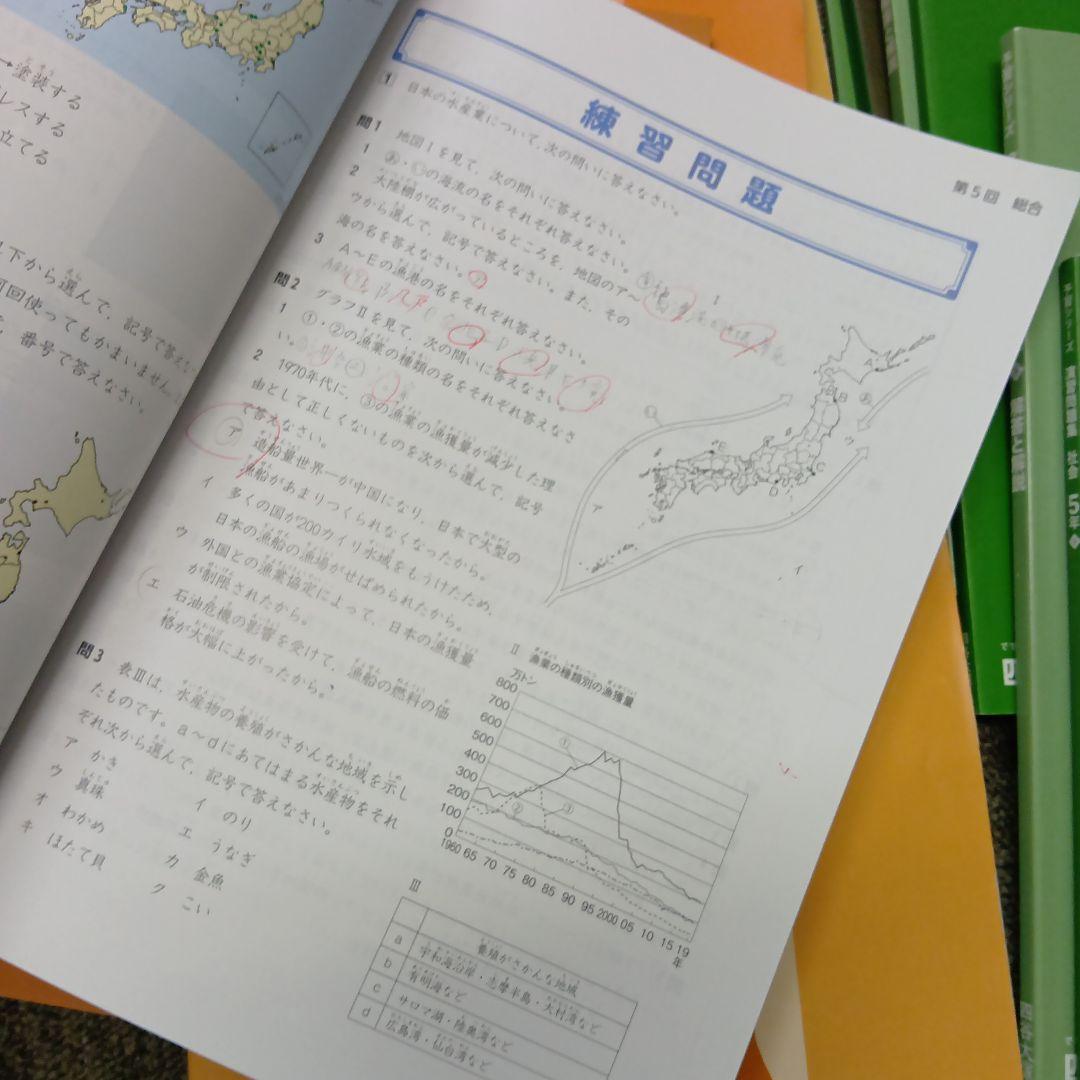 →塗装する
レスする
立てる
下から選んで、記号で答え
何回使ってもかまいません。
番号で答えなさい。
練習問題
第5回 総合
1 日本の水産業について、次の問いに答えなさい。
問1 地図Ⅰを見て、次の問いに答えなさい。
1 Ⓐ・Ⓒの海流の名をそれぞれ答えなさい。
2 大陸棚が広がっているところを、地図のア〜
ウから選んで、記号で答えなさい。また、その
海の名を答えなさい。
3 A〜Eの漁港の名をそれぞれ答えなさい。
問2 グラフⅡを見て、次の問いに答えなさい。
1 ①・②の漁業の種類の名をそれぞれ答えなさ
い。
2 1970年代に、③の漁業の漁獲量が減少した理
由として正しくないものを次から選んで、記号
で答えなさい。
ア 造船量世界一が中国になり、日本で大型の
漁船があまりつくられなくなったから。
イ 多くの国が200カイリ水域をもうけたため、
日本の漁船の漁場がせばめられたから。
ウ 外国との漁業協定によって、日本の漁獲量
が制限されたから。
エ 石油危機の影響を受けて、漁船の燃料の価
格が大幅に上がったから。
問3 表Ⅲは、水産物の養殖がさかんな地域を示し
たものです。a〜dにあてはまる水産物をそれ
ぞれ次から選んで、記号で答えなさい。
ア かき イ のり
ウ 真珠 エ うなぎ
オ わかめ カ 金魚
キ ほたて貝 ク こい
Ⅰ
B
E
C
D
ア
イ
ウ
Ⅱ 漁業の種類別の漁獲量
万トン
800
700
600
500
400
300
200
100
0
① ② ③
1960 65 70 75 80 85 90 95 2000 05 10 15 19
年
Ⅲ
養殖がさかんな地域
a 宇和海沿岸・志摩半島・大村湾など
b 有明海など
c サロマ湖・陸奥湾など
d 広島湾・仙台湾など
社会 5年